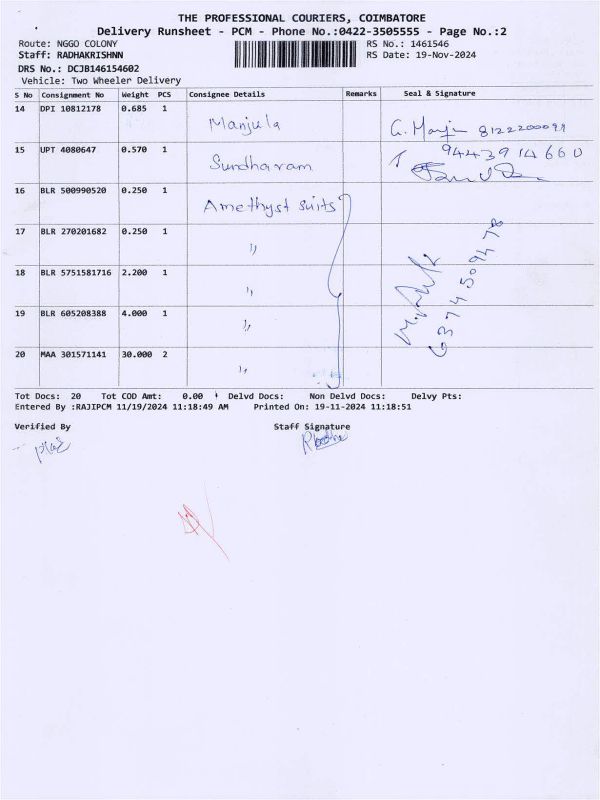 THE PROFESSIONAL COURIERS, COIMBATORE
Delivery Runsheet - PCM - Phone No.:0422-3505555 - Page No.:2
Route: NGGO COLONY RS No.: 1461546
Staff: RADHAKRISHNN RS Date: 19-Nov-2024
DRS No.: DCJB146154602
Vehicle: Two Wheeler Delivery
S No Consignment No Weight PCS Consignee Details Remarks Seal & Signature
14 DPI 10812178 0.685 1 Manjula 8122200099
15 UPT 4080647 0.570 1 Sundharam 9443914660
16 BLR 500990520 0.250 1 Amethyst suits
17 BLR 270201682 0.250 1 ,,
18 BLR 5751581716 2.200 1 ,,
19 BLR 605208388 4.000 1 ,,
20 MAA 301571141 30.000 2 ,,
6374509478
Tot Docs: 20 Tot COD Amt: 0.00 Delvd Docs: Non Delvd Docs: Delvy Pts:
Entered By :RAJIPCM 11/19/2024 11:18:49 AM Printed On: 19-11-2024 11:18:51
Verified By Staff Signature
Radha